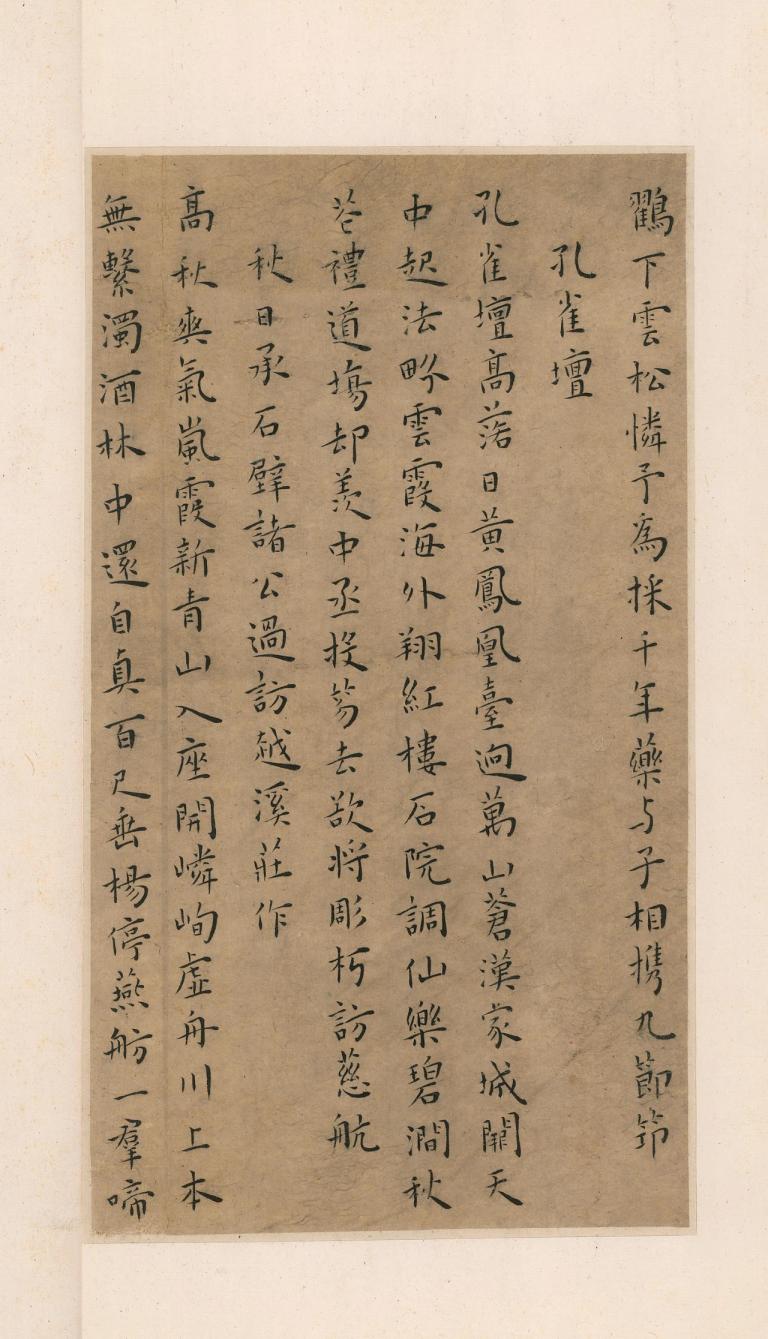 鸛下雲松憐予為採千年藥与子相攜九節筇
孔雀壇
孔雀壇高落日黃鳳凰臺迥萬山蒼漢家城闕天
中起法界雲霞海外翔紅樓石院調仙樂碧澗秋
苍禮道場却羨中丞投笏去欲將彫朽訪慈航
秋日承石壁諸公過訪越溪莊作
高秋爽氣嵐霞新青山入座開嶙峋虛舟川上本
無繫濁酒林中還自真百尺垂楊停燕舫一羣啼